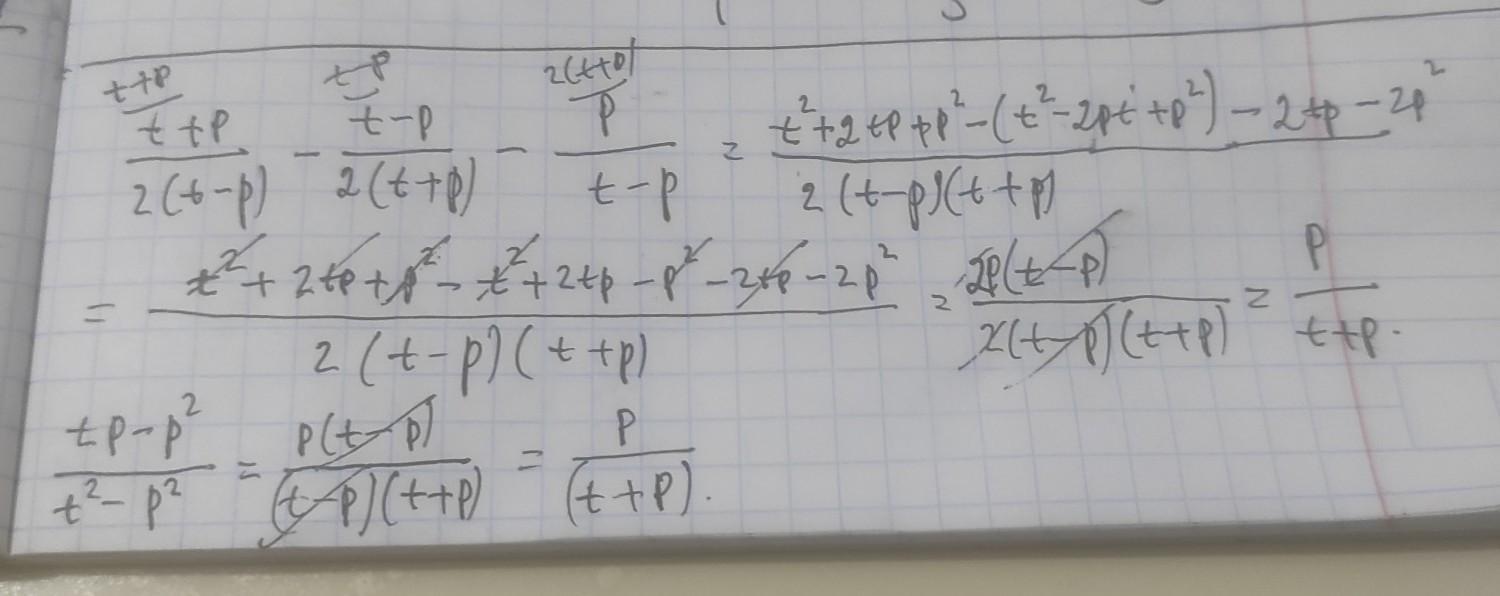 t+p t-p 2(t+p)
(t+p)/(2(t-p)) - (t-p)/(2(t+p)) - p/(t-p) = (t²+2tp+p²-(t²-2pt+p²)-2tp-2p²)/(2(t-p)(t+p))
= (t²+2tp+p²-t²+2tp-p²-2tp-2p²)/(2(t-p)(t+p)) = (2p(t-p))/(2(t-p)(t+p)) = p/(t+p).
(tp-p²)/(t²-p²) = (p(t-p))/((t-p)(t+p)) = p/((t+p)).